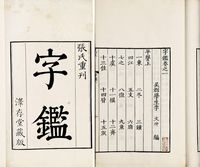 張氏重刊
字鑑
澤存堂藏版
字鑑卷之一
吳郡學生李文仲編
平聲上
一東 二冬 三鍾
四江 五支 六脂
七之 八微 九魚
十虞 十一模 十二齊
十三佳 十四皆 十五灰